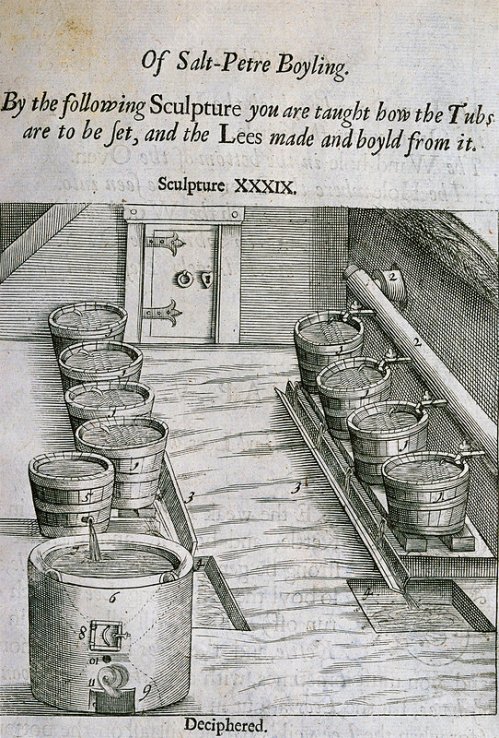 Of Salt-Petre Boyling.
By the following Sculpture you are taught how the Tubs
are to be ſet, and the Lees made and boyld from it.
Sculpture XXXIX.
2
2
1
1
1
1
1
1
5
3
3
4
4
7
6
8
10
11
9
Deciphered.